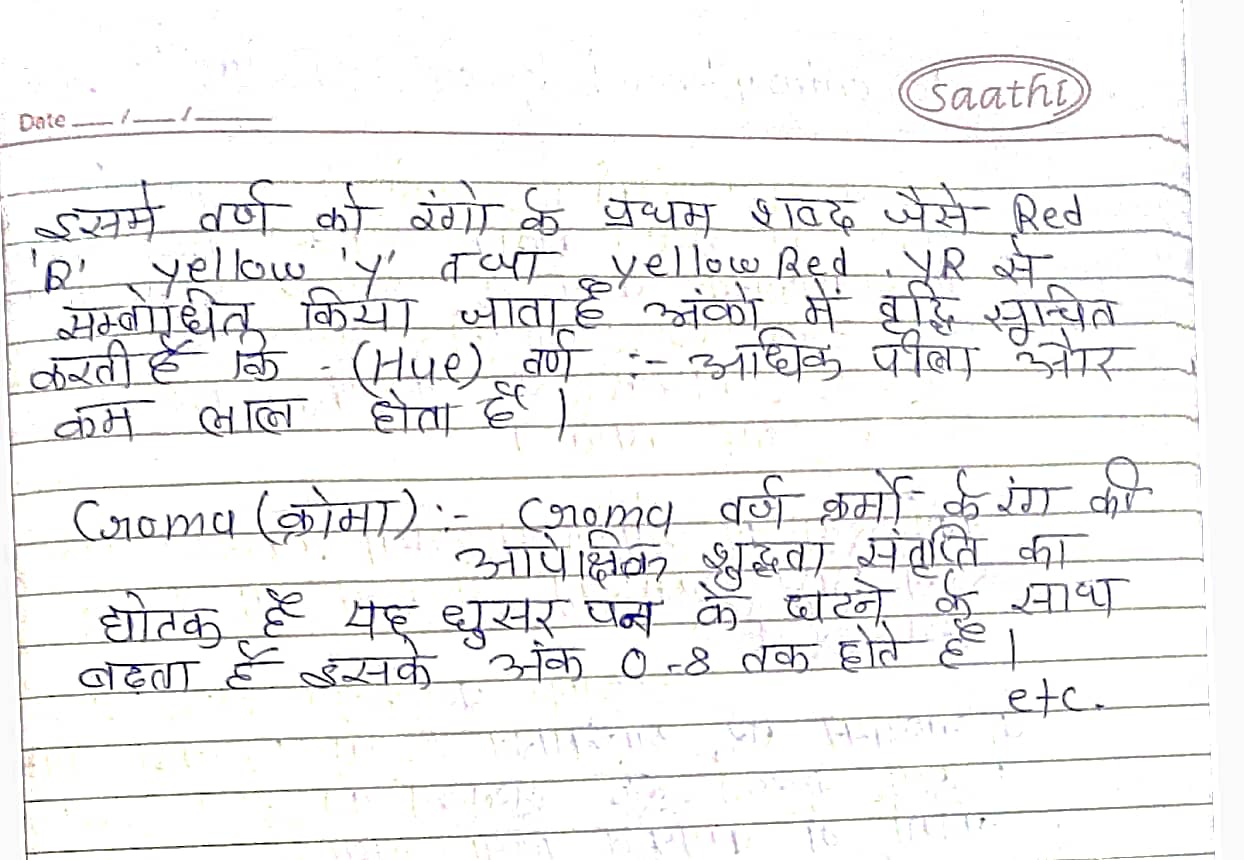 Saathi
Date
इसमे वर्ण को रंगो के प्रथम शब्द जैसे Red
'R' yellow 'y' तथा yellow Red. YR से
सम्बोधित किया जाता है अंको में वृद्धि सूचित
करती है कि - (Hue) वर्ण :- अधिक पीला और
कम लाल होता है।
Croma (क्रोमा) :- Croma वर्ण क्रमो के रंग की
आपेक्षिक शुद्धता संतृप्ति का
द्योतक है यह धुसर पन के घटने के साथ
बढता है इसके अंक 0-8 तक होते है।
etc.